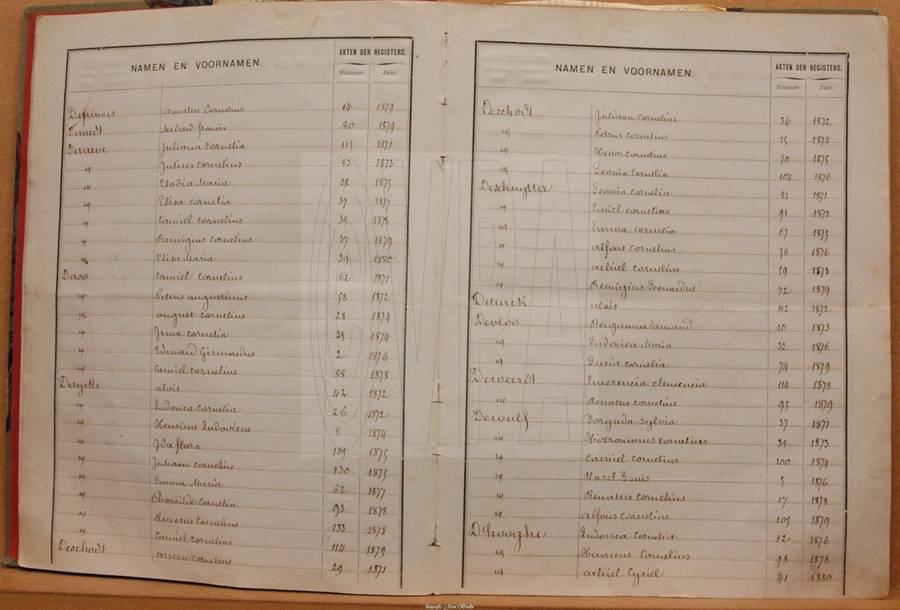 NAMEN EN VOORNAMEN. AKTEN DER REGISTERS.
Nummer. Jaar.
Cornelius 14 1879
80 1879
Deraeve Juliana Cornelia 115 1871
" Julius Cornelius 83 1873
" Elodia Maria 18 1875
" Elisa Cornelia 37 1877
" Camiel Cornelius 35 1878
" Remigius Cornelius 37 1879
" Elisa Maria 39 1880
Deroo Camiel Cornelius 62 1871
" Petrus Augustinus 58 1872
" August Cornelius 28 1874
" Cornelia 38 1874
" Edmond 2 1876
" Camiel Cornelius 88 1878
Derycke Alois 42 1872
" Ludovica Cornelia 26 1872
" Henricus Ludovicus 8 1874
" Ida Flora 105 1875
" Juliaan Cornelius 130 1875
" Emma Maria 62 1877
" Pharaïlde Cornelia 93 1878
" Renatus Cornelius 133 1878
" Camiel Cornelius 114 1879
Deschodt Arseen Cornelius 29 1871
NAMEN EN VOORNAMEN. AKTEN DER REGISTERS.
Nummer. Jaar.
Deschodt Juliaan Cornelius 36 1872
" Petrus Cornelius 15 1874
" Hector Cornelius 70 1875
" Leonia Cornelia 104 1876
Deschuytter Leonia Cornelia 81 1871
" Cornelius 91 1873
" Emma Cornelia 67 1875
" Alfons Cornelius 56 1876
" Achiel Cornelius 59 1878
" Remigius Leonardus 72 1879
Deturck Alois 42 1872
Devloo Benjamin Amand 10 1873
" Ludovica Maria 32 1876
" Lucia Cornelia 74 1879
Deweerdt Emerencia Clemencia 114 1878
" Renatus Cornelius 95 1879
Dewulf Sylvia 37 1871
" Hieronimus Cornelius 31 1873
" Camiel Cornelius 100 1874
" Marcel Louis 5 1876
" Renatus Cornelius 17 1878
" Alfons Cornelius 105 1879
D'hoeghe Ludovica Cornelia 12 1876
" Henricus Cornelius 98 1878
" Achiel Cyriel 41 1880